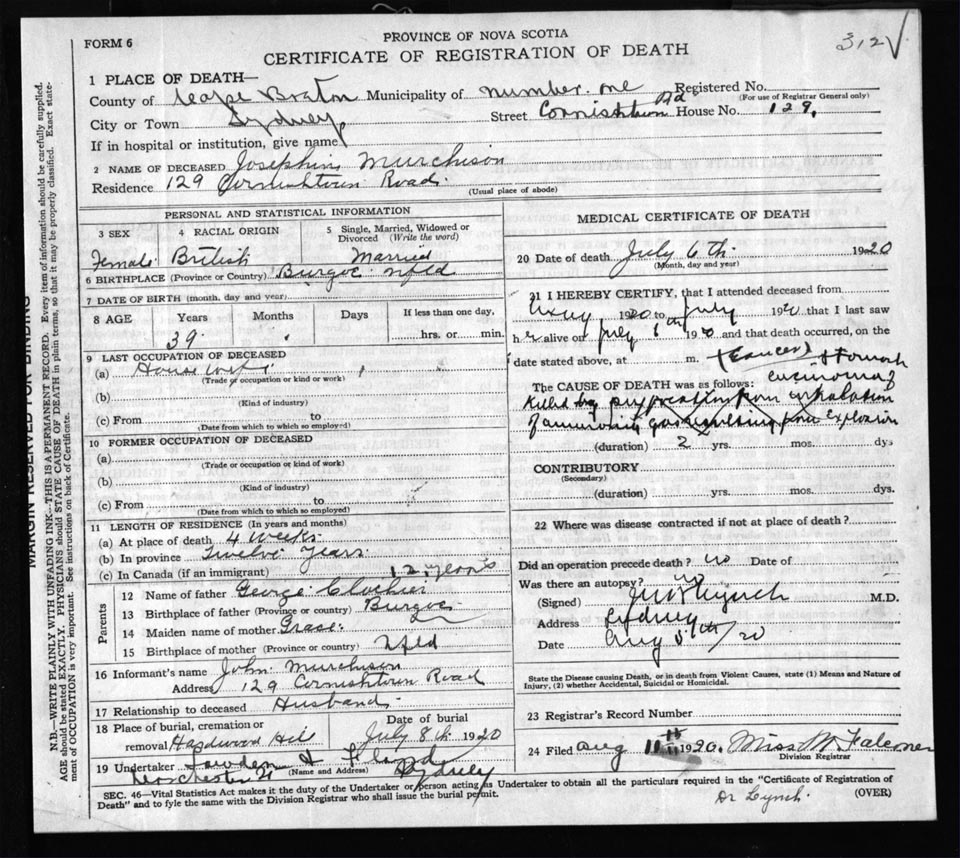 FORM 6
PROVINCE OF NOVA SCOTIA
CERTIFICATE OF REGISTRATION OF DEATH
312 V
1 PLACE OF DEATH—
County of Cape Breton Municipality of number one Registered No.
(For use of Registrar General only)
City or Town Sydney, Street Cornishtown Rd House No. 129,
If in hospital or institution, give name
2 NAME OF DECEASED Josephine Murchison
Residence 129 Cornishtown Road.
(Usual place of abode)
PERSONAL AND STATISTICAL INFORMATION
3 SEX 4 RACIAL ORIGIN 5 Single, Married, Widowed or Divorced (Write the word)
Female British Married
6 BIRTHPLACE (Province or Country) Burgoe nfld
7 DATE OF BIRTH (month, day and year)
8 AGE Years Months Days If less than one day,
39 hrs. or min.
9 LAST OCCUPATION OF DECEASED
(a) House wife
(Trade or occupation or kind of work)
(b)
(Kind of industry)
(c) From to
(Date from which to which so employed)
10 FORMER OCCUPATION OF DECEASED
(a)
(Trade or occupation or kind of work)
(b)
(Kind of industry)
(c) From to
(Date from which to which so employed)
11 LENGTH OF RESIDENCE (In years and months)
(a) At place of death 4 weeks.
(b) In province Twelve Years.
(c) In Canada (if an immigrant) 12 years
Parents
12 Name of father George
13 Birthplace of father (Province or country) Burgoe
14 Maiden name of mother Grace.
15 Birthplace of mother (Province or country) Nfld
16 Informant's name John Murchison
Address 129 Cornishtown Road
17 Relationship to deceased Husband
18 Place of burial, cremation or removal Hardwood Hill Date of burial July 8th 1920
19 Undertaker
(Name and Address)
Dorchester St Sydney
MEDICAL CERTIFICATE OF DEATH
20 Date of death July 6th 1920
(Month, day and year)
21 I HEREBY CERTIFY, that I attended deceased from
1920 to July 1920 that I last saw
her alive on July 1920 and that death occurred, on the
date stated above, at m. (Cancer)
The CAUSE OF DEATH was as follows: carcinoma of stomach
Killed by suffocation from inhalation
of ammonia gas resulting from explosion
(duration) 2 yrs. mos. dys
CONTRIBUTORY
(Secondary)
(duration) yrs. mos. dys.
22 Where was disease contracted if not at place of death?
Did an operation precede death? no Date of
Was there an autopsy? no
(Signed) Lynch M.D.
Address Sydney
Date Aug 20
State the Disease causing Death, or in death from Violent Causes, state (1) Means and Nature of
Injury, (2) whether Accidental, Suicidal or Homicidal.
23 Registrar's Record Number
24 Filed Aug 1920. Miss M Falconer
Division Registrar
SEC. 46—Vital Statistics Act makes it duty of the Undertaker or person acting as Undertaker to obtain all the particulars required in the "Certificate of Registration of
Death" and to fyle the same with the Division Registrar who shall issue the burial permit.
Dr Lynch. (OVER)
MARGIN RESERVED FOR BINDING
N.B.—WRITE PLAINLY WITH UNFADING INK—THIS IS A PERMANENT RECORD. Every item of information should be carefully supplied.
AGE should be stated EXACTLY. PHYSICIANS should STATE CAUSE OF DEATH in plain terms, so that it may be properly classified. Exact statement of OCCUPATION is very important. See instructions on back of Certificate.